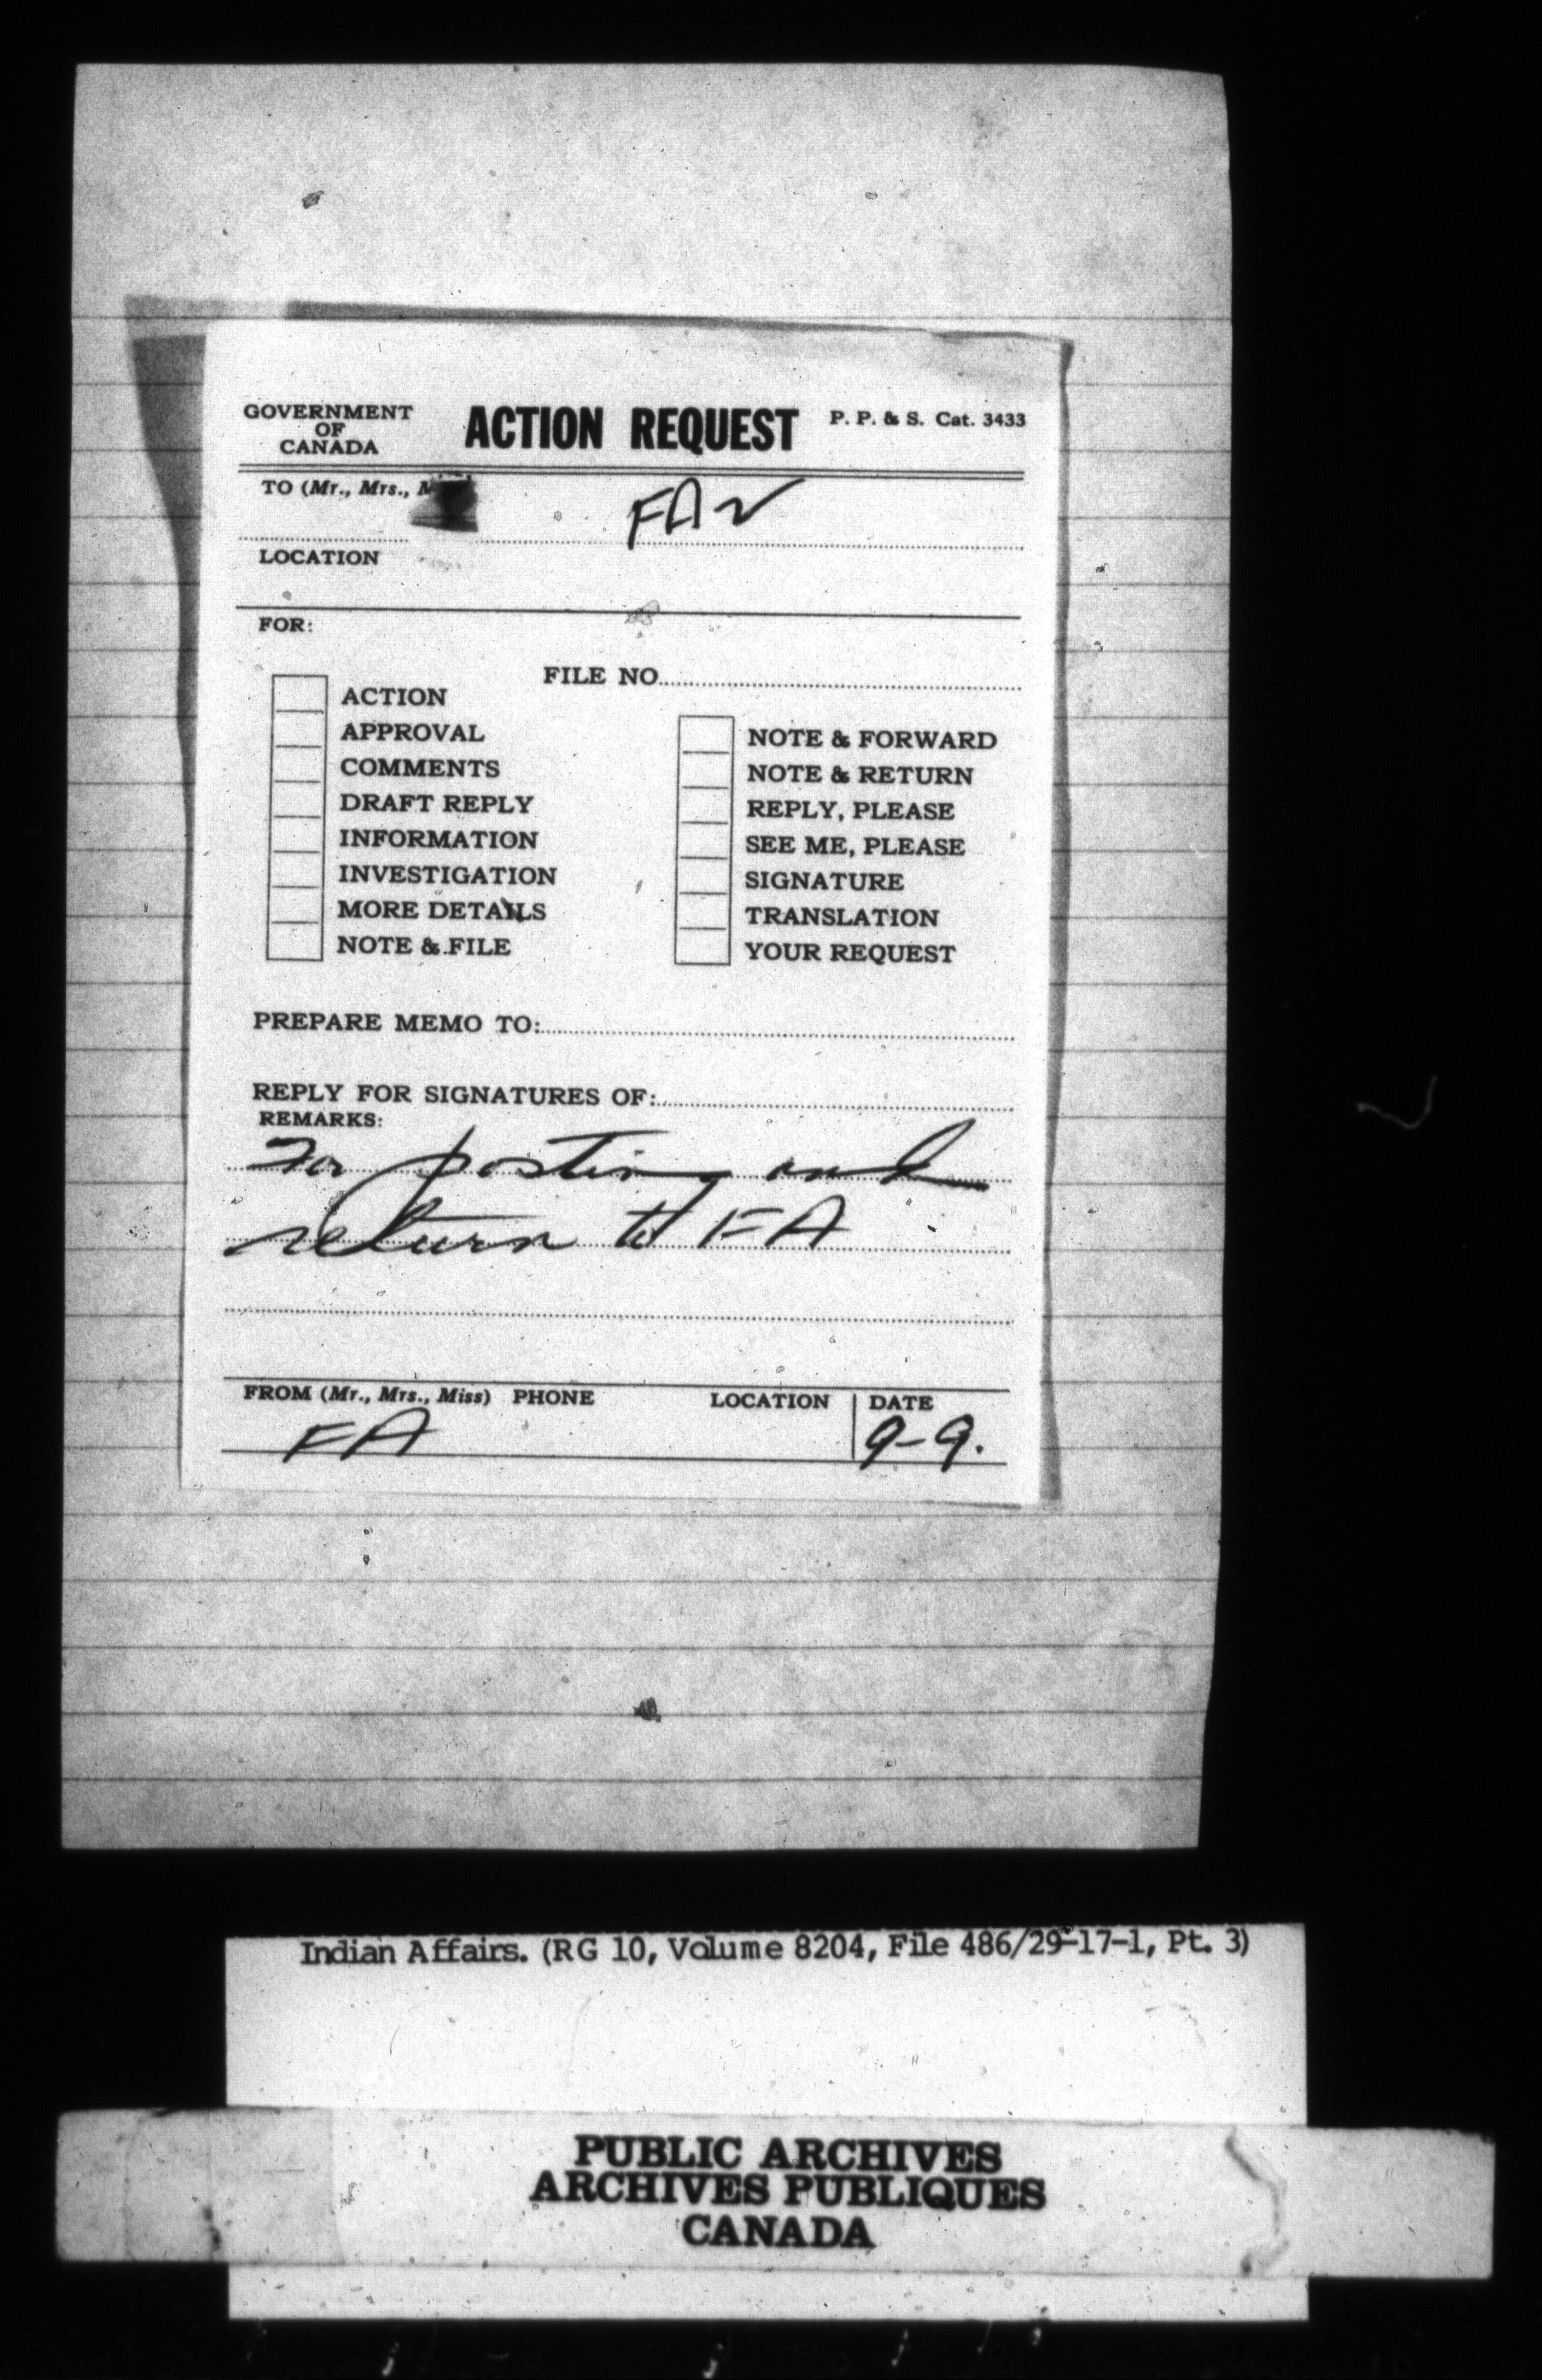 GOVERNMENT OF CANADA
ACTION REQUEST
P. P. & S. Cat. 3433
TO (Mr., Mrs., M
FA
LOCATION
FOR:
FILE NO
ACTION
APPROVAL
COMMENTS
DRAFT REPLY
INFORMATION
INVESTIGATION
MORE DETAILS
NOTE & FILE
NOTE & FORWARD
NOTE & RETURN
REPLY, PLEASE
SEE ME, PLEASE
SIGNATURE
TRANSLATION
YOUR REQUEST
PREPARE MEMO TO:
REPLY FOR SIGNATURES OF:
REMARKS:
For posting and
return to FA
FROM (Mr., Mrs., Miss) PHONE LOCATION DATE
FA 9-9.
Indian Affairs. (RG 10, Volume 8204, File 486/29-17-1, Pt. 3)
PUBLIC ARCHIVES
ARCHIVES PUBLIQUES
CANADA